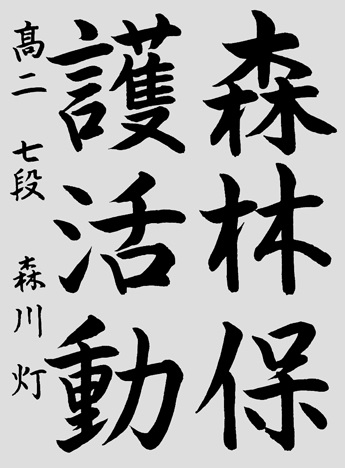 森林保
護活動
髙二 七段 森川灯